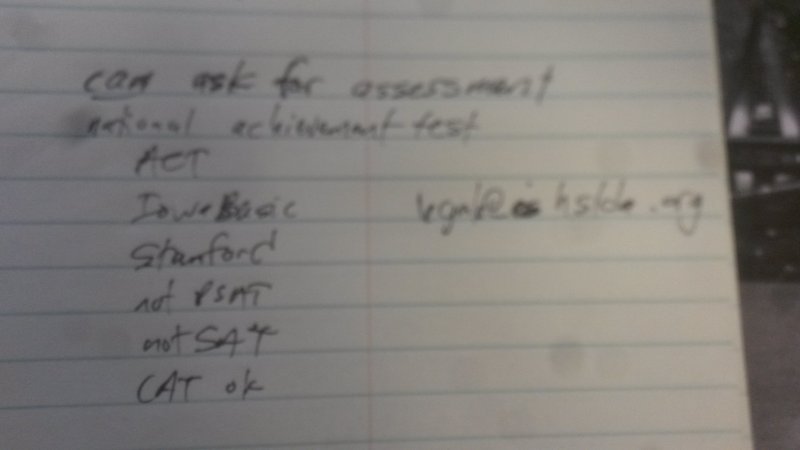 can ask for assessment
national achievement test
ACT
Iowa Basic
Stanford
not PSAT
not SAT
CAT ok
hslda.org